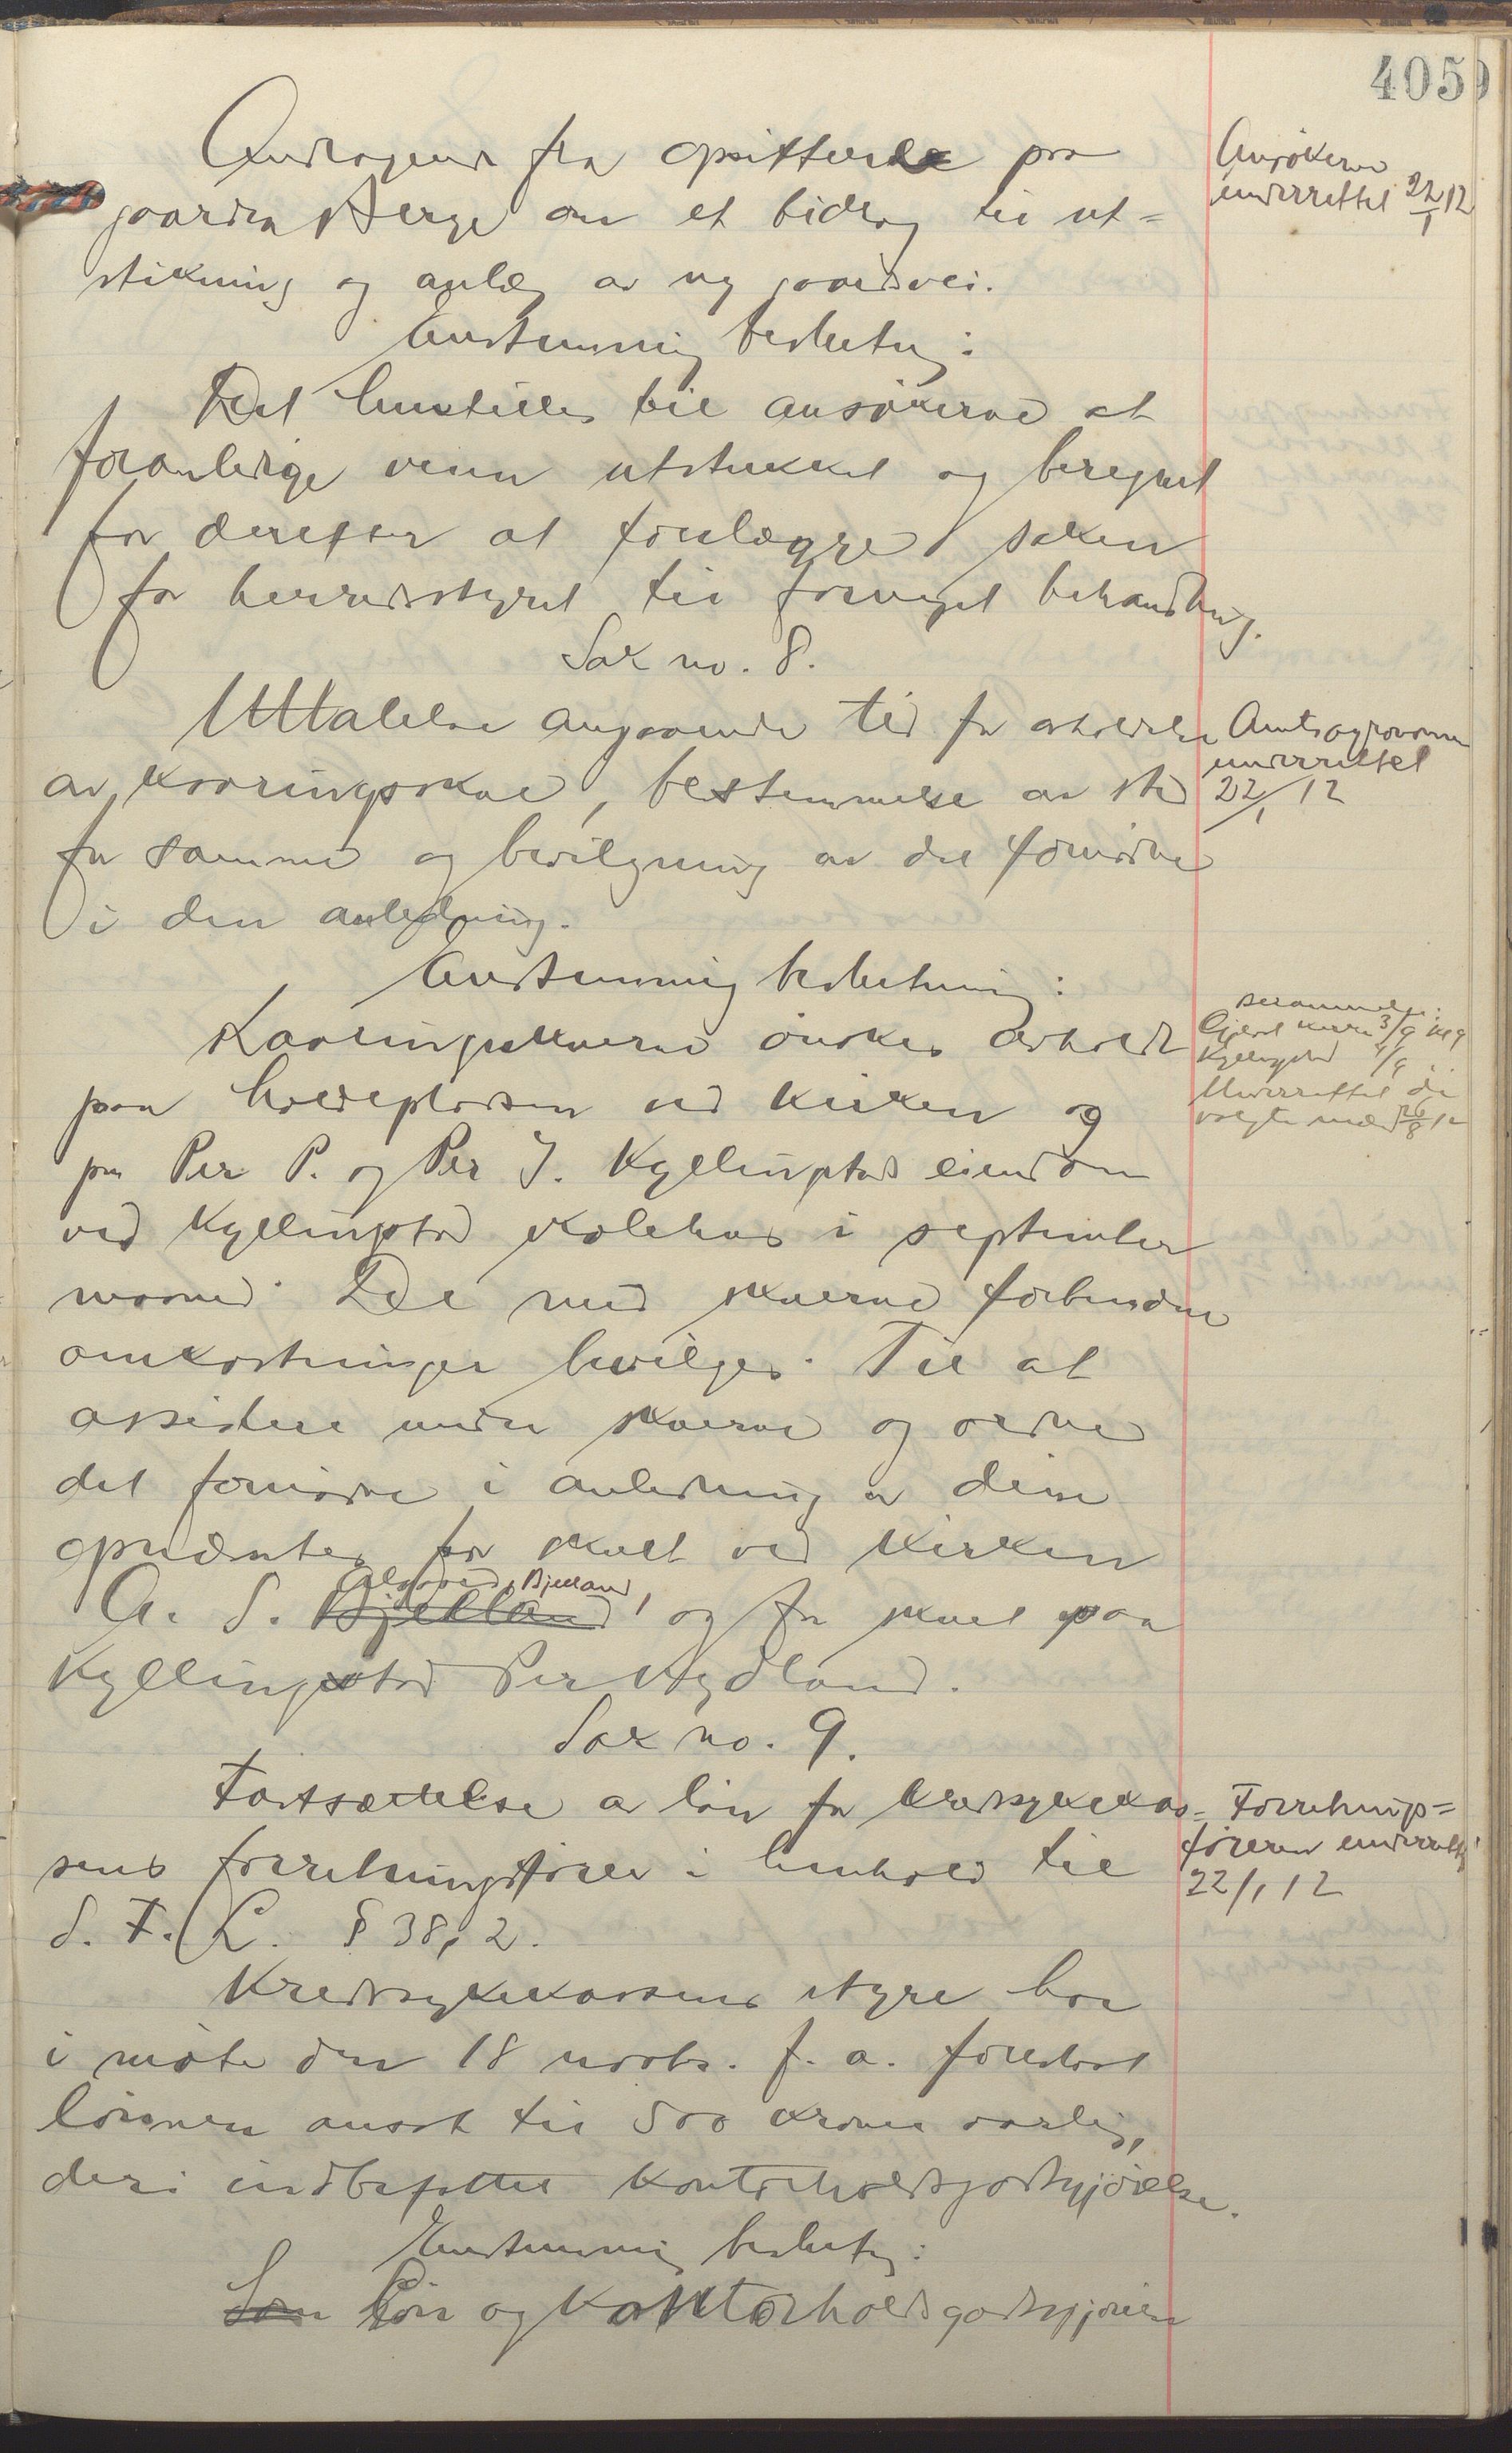 405
Andragende fra opsitterne paa
gaarden Berge om et bidrag til ut=
stikning og anlæg av ny gaardsvei.
Enstemmig beslutng:
Det henstilles til ansøkerne at
foranledige veien utstukket og beregnet
for derefter at forelægge saken
for herredsstyret til fornyet behandling.
Sak no. 8.
Uttalelse angaaende tid for avholdelse
av kaaringsskue, bestemmelse av sted
for samme og bevilgning av det fornødne
i den anledning.
Enstemmig beslutning:
Kaaringsskuerne ønskes avholdt
paa holdeplassen ved kirken og
paa Per P. og Per J. Kyllingstads eiendom
ved Kyllingstad skolehus i september
maaned. De med skuerne forbundne
omkostninger bevilges. Til at
assistere under skuerne og ordne
det fornødne i anledning av disse
opnævntes for skuet ved kirken
Bjelland
A. S. Bjelland, og for skuet paa
Kyllingstad Per Hydland.
Sak no. 9.
Fastsættelse av løn for kredssykekas=
sens forretningsfører i henhold til
S. F. L. § 38, 2.
Kredssykekassens styre har
i møte den 18 novbr. f. a. foreslaat
lønnen ansat til 500 kroner aarlig,
deri indbefattet kontorholdsgodtgjørelse.
Enstemmig beslutng:
Som Løn og kontorholdsgodtgjørelse
Ansøkerne
underrettet 22/1 12
Amtsagronomen
underrettet
22/1 12
Gjesdal kirke 3/9 kl 9
Kyllingstad 4/9
Underrettet de
valgte mænd 26/8 12
Forretnings=
føreren underrettet
22/1 12